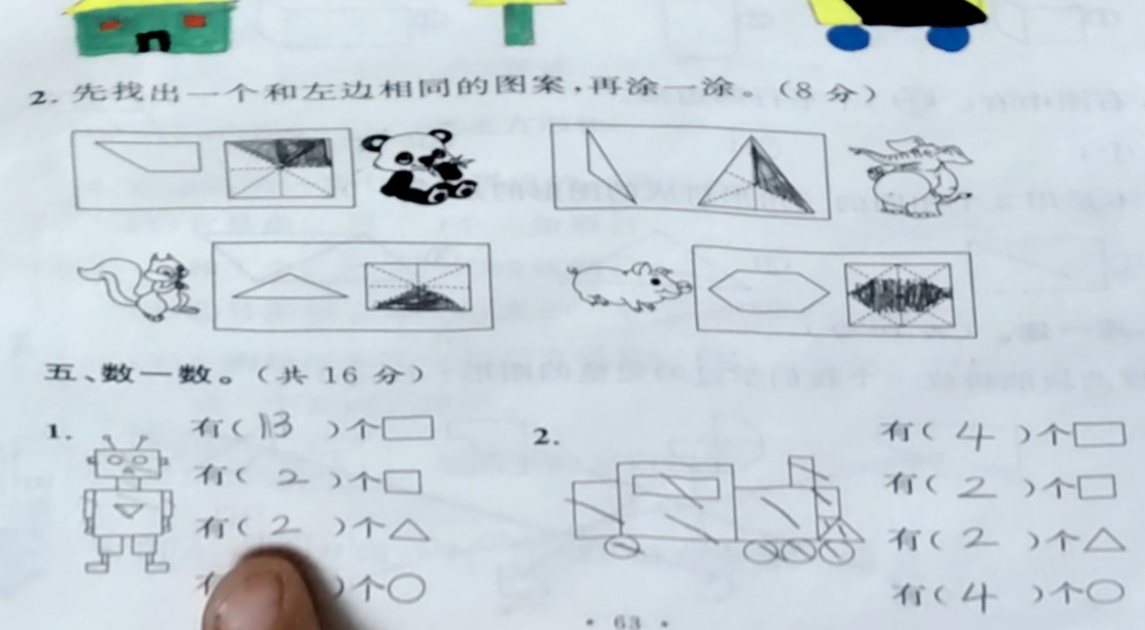 2. 先找出一个和左边相同的图案,再涂一涂。(8 分)
五、数一数。(共 16 分)
1.
有( 13 )个
有( 2 )个
有( 2 )个
)个
2.
有( 4 )个
有( 2 )个
有( 2 )个
有( 4 )个
• 63 •